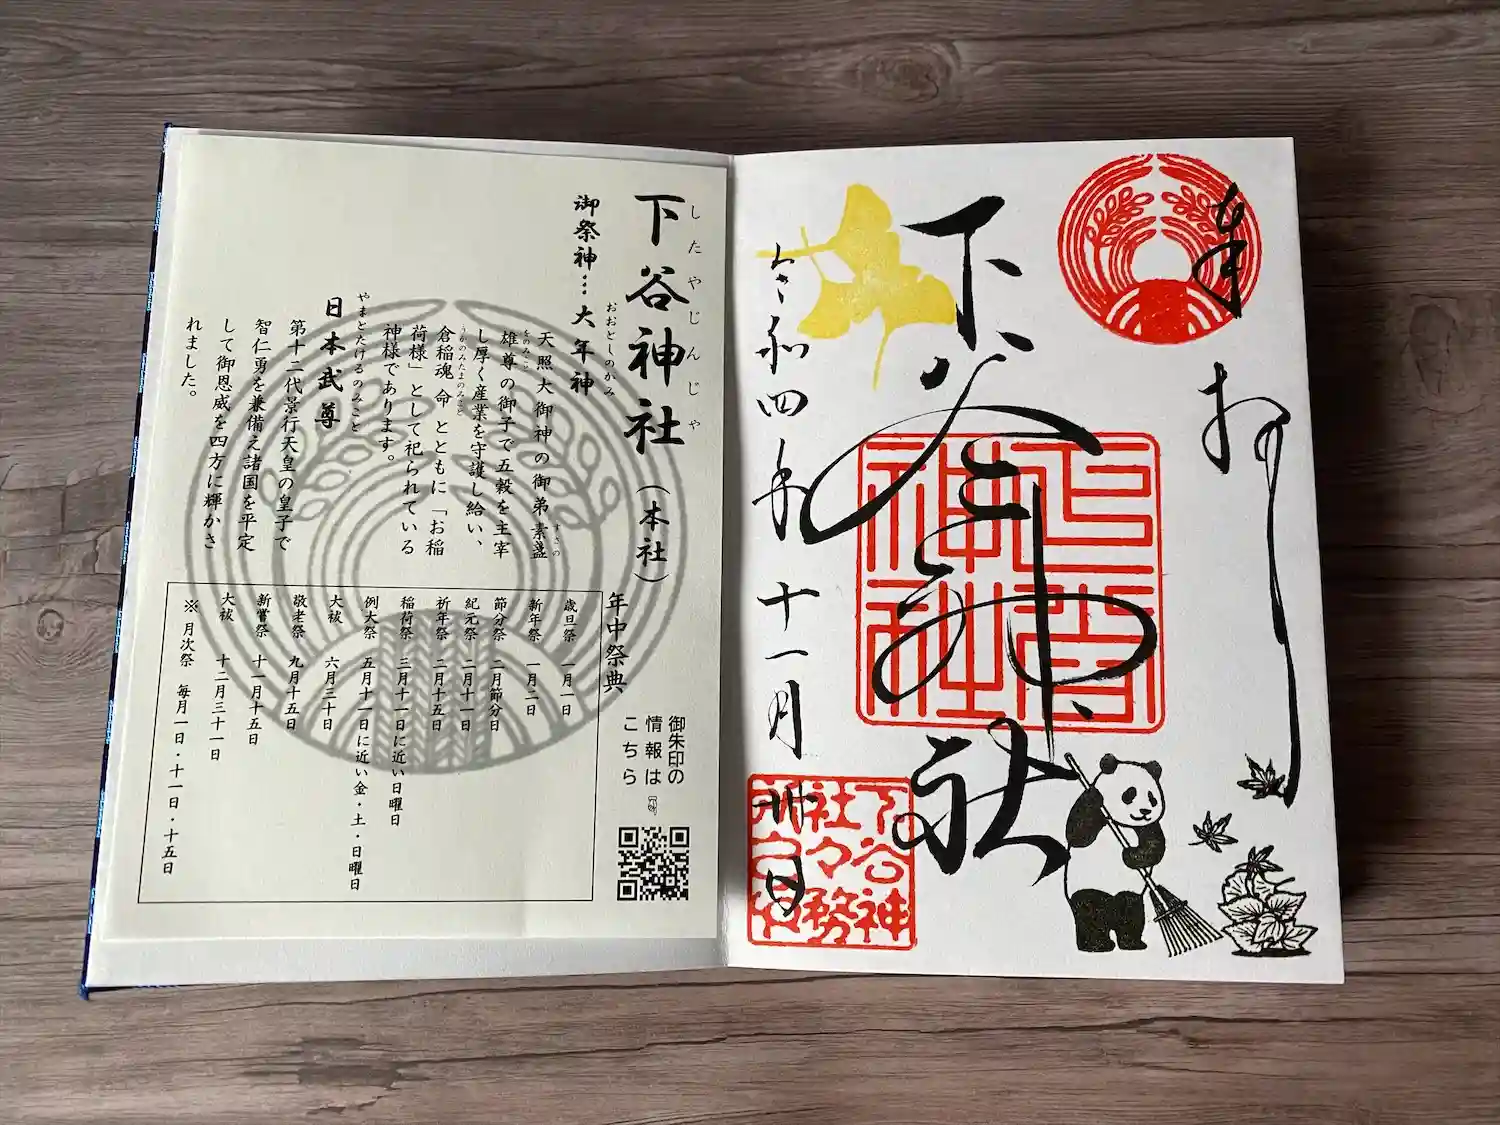 下谷神社（本社）
したやじんじゃ
御祭神…大年神
おおとしのかみ
天照大御神の御弟素盞
すさの
雄尊の御子で五穀を主宰
をのみこと
し厚く産業を守護し給い、
倉稲魂命とともに「お稲
うかのみたまのみこと
荷様」として祀られている
神様であります。
日本武尊
やまとたけるのみこと
第十二代景行天皇の皇子で
智仁勇を兼備え諸国を平定
して御恩威を四方に輝かさ
れました。
年中祭典
歳旦祭 一月一日
新年祭 一月二日
節分祭 二月節分日
紀元祭 二月十一日
祈年祭 二月十五日
稲荷祭 三月十一日に近い日曜日
例大祭 五月十一日に近い金・土・日曜日
大祓 六月三十日
敬老祭 九月十五日
新嘗祭 十一月十五日
大祓 十二月三十一日
※ 月次祭 毎月一日・十一日・十五日
御朱印の
情報は
こちら
奉拝
下谷神社
令和四年十一月卅日
下谷神
社々務